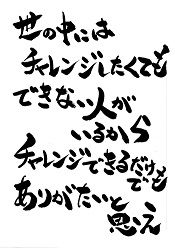 世の中には
チャレンジしたくても
できない人が
いるから
チャレンジできるだけ
でも
ありがたいと
思え